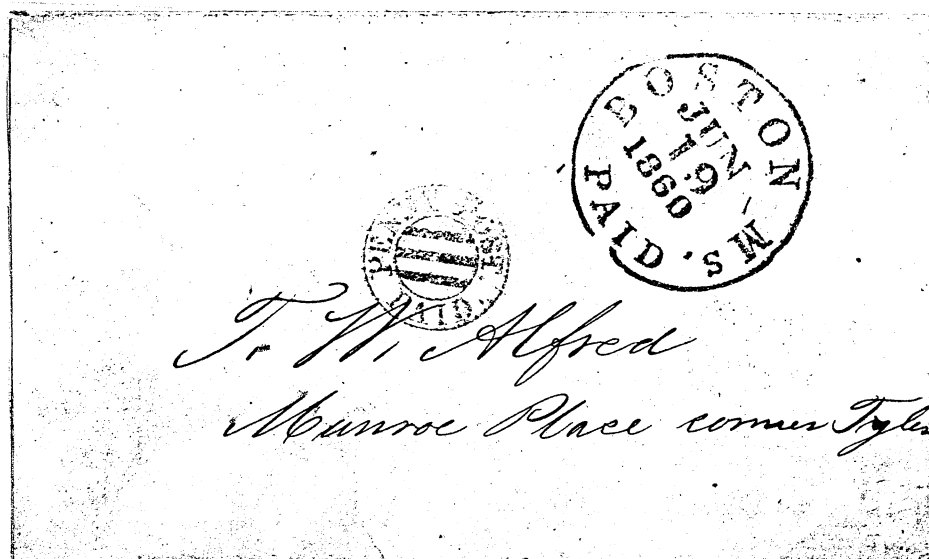 BOSTON MS.
JUN
19
1860
PAID
PENNY POST
PAID.
T. W. Alfred
Munroe Place corner Tyler